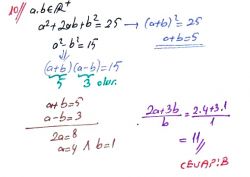 10// a.b∈ℝ⁺
a²+2ab+b²=25 → (a+b)²=25
a+b=5
a²-b²=15
(a+b)(a-b)=15
5 3 olur.
a+b=5
a-b=3
2a=8
a=4 ∧ b=1
2a+3b/b = 2.4+3.1/1
= 11//
CEVAP:B